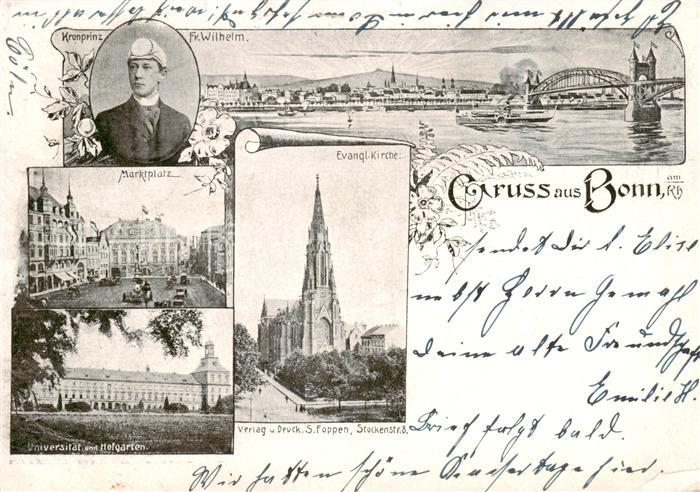 Kronprinz
Fr. Wilhelm.
Evangl. Kirche:
Marktplatz
Gruss aus Bonn, am Rh
sendet Dir l. Elise
nebst Herrn Gemahl
Deine alte Freundschaft
Emilie H.
Brief folgt bald.
Verlag u. Druck. S. Foppen, Stockenstr. 8.
Universität und Hofgarten.
Wir hatten schöne Kaisertage hier.